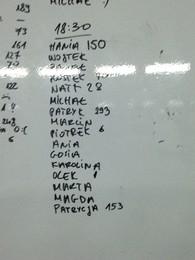 189 MICHAŁ
—
13 18:30
161 HANIA 150
127 WOJTEK
NATT 28
122 MICHAŁ
PATRYK 293
MARCIN
PIOTREK 6
6 ANIA
GOSIA
KAROLINA
OLEK
MARTA
MAGDA
PATRYCJA 153